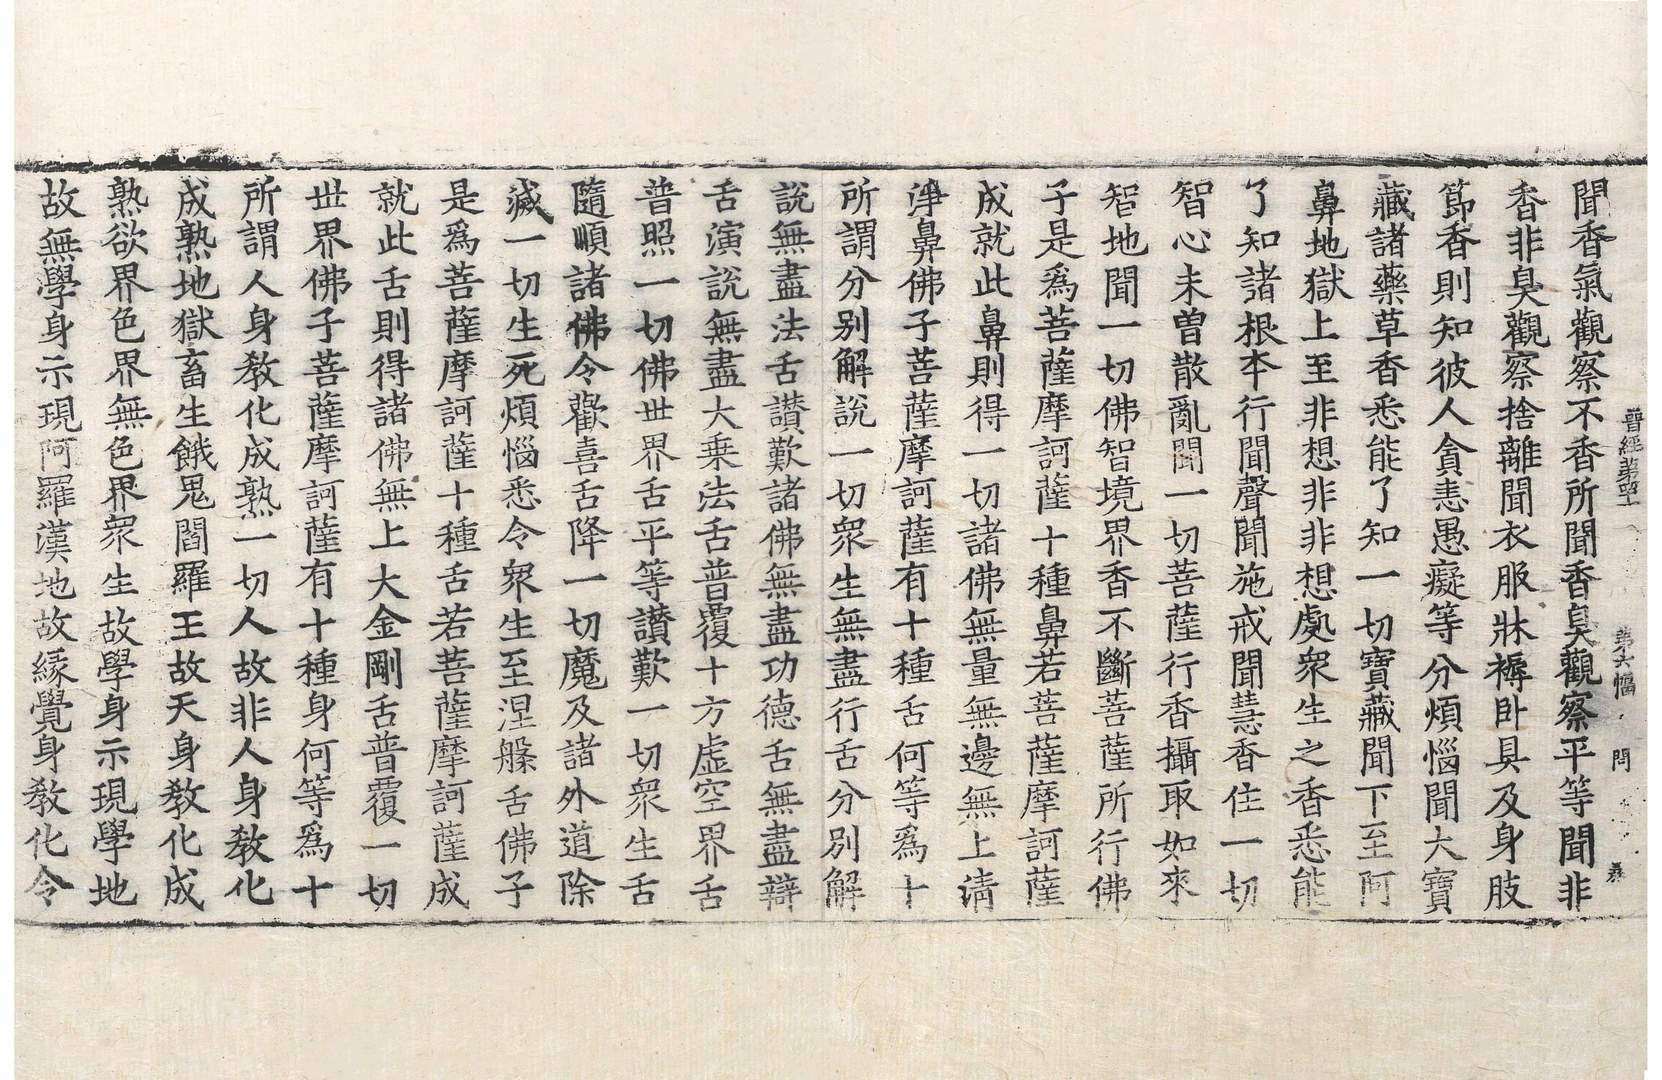 晉經第四十 第六幅 問
聞香氣觀察不香所聞香臭觀察平等聞非
香非臭觀察捨離聞衣服牀褥卧具及身肢
節香則知彼人貪恚愚癡等分煩惱聞大寶
藏諸藥草香悉能了知一切寶藏聞下至阿
鼻地獄上至非想非非想處衆生之香悉能
了知諸根本行聞聲聞施戒聞慧香住一切
智心未曾散亂聞一切菩薩行香攝取如來
智地聞一切佛智境界香不斷菩薩所行佛
子是爲菩薩摩訶薩十種鼻若菩薩摩訶薩
成就此鼻則得一切諸佛無量無邊無上清
淨鼻佛子菩薩摩訶薩有十種舌何等爲十
所謂分別解說一切衆生無盡行舌分別解
說無盡法舌讃歎諸佛無盡功德舌無盡辯
舌演說無盡大乗法舌普覆十方虛空界舌
普照一切佛世界舌平等讃歎一切衆生舌
隨順諸佛令歡喜舌降一切魔及諸外道除
滅一切生死煩惱悉令衆生至涅槃舌佛子
是爲菩薩摩訶薩十種舌若菩薩摩訶薩成
就此舌則得諸佛無上大金剛舌普覆一切
世界佛子菩薩摩訶薩有十種身何等爲十
所謂人身教化成熟一切人故非人身教化
成熟地獄畜生餓鬼閻羅王故天身教化成
熟欲界色界無色界衆生故學身示現學地
故無學身示現阿羅漢地故縁覺身教化令